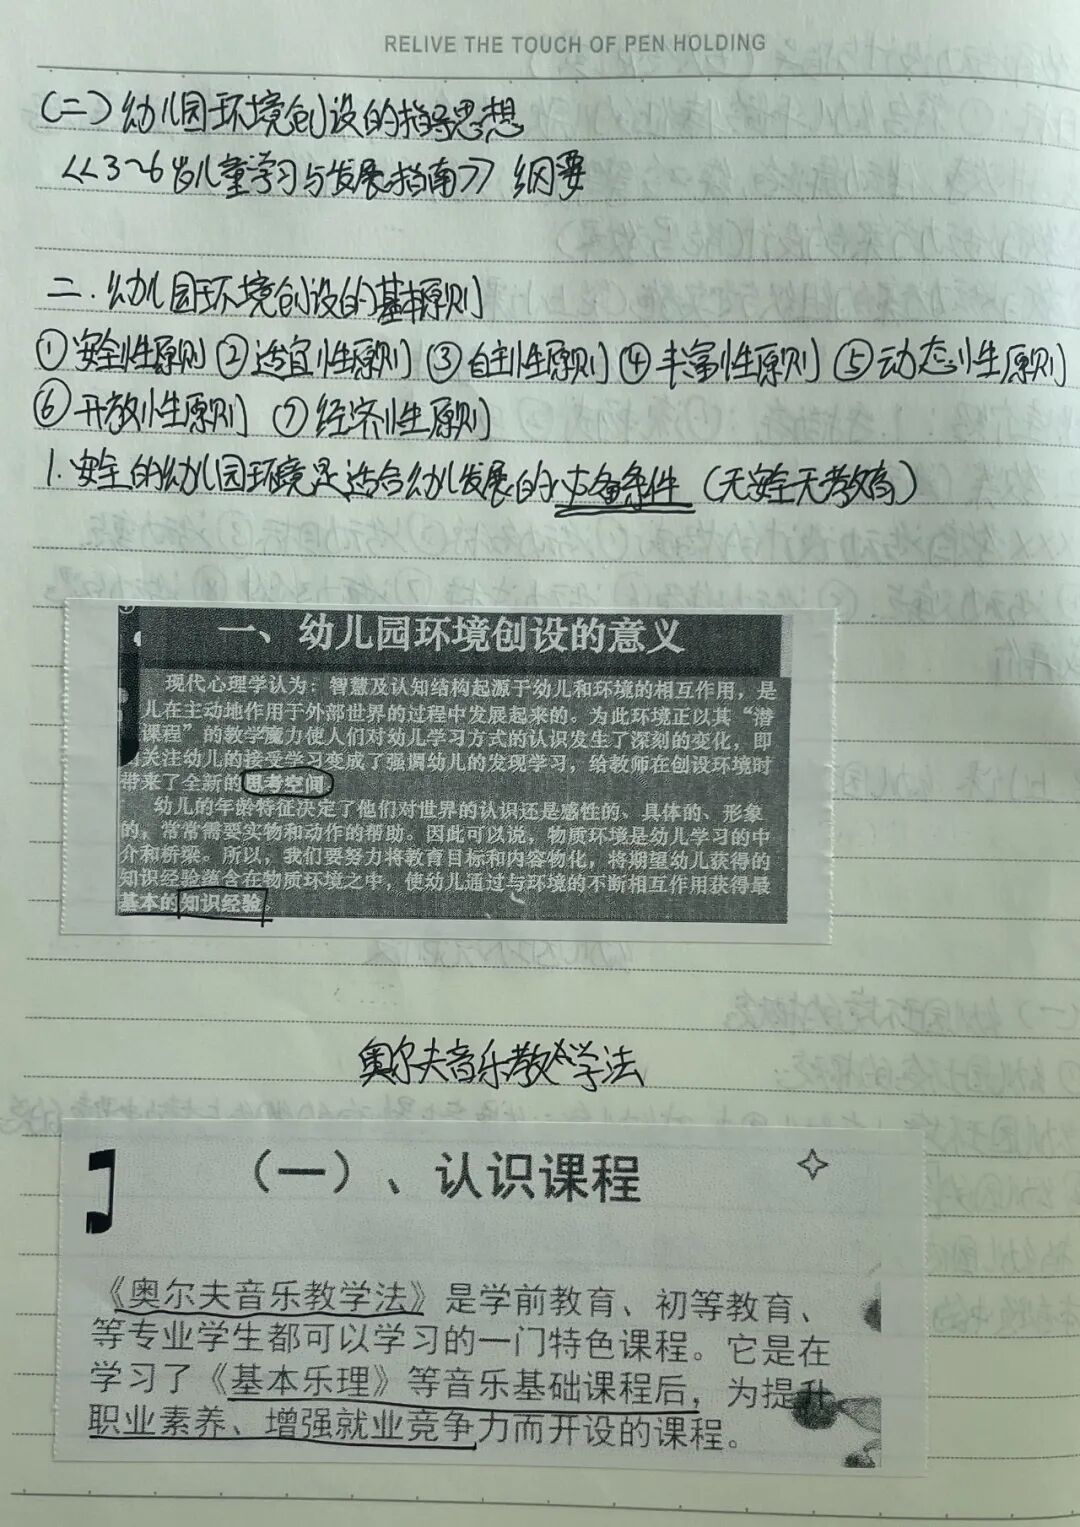 RELIVE THE TOUCH OF PEN HOLDING
(二)幼儿园环境创设的指导思想
<<3~6岁儿童学习与发展指南>> 纲要
二.幼儿园环境创设的基本原则
①安全性原则 ②适宜性原则 ③自主性原则 ④丰富性原则 ⑤动态性原则
⑥开放性原则 ⑦经济性原则
1.安全的幼儿园环境是适合幼儿发展的必备条件(无安全无教育)
一、幼儿园环境创设的意义
现代心理学认为：智慧及认知结构起源于幼儿和环境的相互作用，是
儿在主动地作用于外部世界的过程中发展起来的。为此环境正以其“潜
课程”的教学魔力使人们对幼儿学习方式的认识发生了深刻的变化，即
关注幼儿的接受学习变成了强调幼儿的发现学习，给教师在创设环境时
带来了全新的思考空间。
幼儿的年龄特征决定了他们对世界的认识还是感性的、具体的、形象
的，常常需要实物和动作的帮助。因此可以说，物质环境是幼儿学习的中
介和桥梁。所以，我们要努力将教育目标和内容物化，将期望幼儿获得的
知识经验蕴含在物质环境之中，使幼儿通过与环境的不断相互作用获得最
基本的知识经验。
奥尔夫音乐教学法
（一）、认识课程
《奥尔夫音乐教学法》是学前教育、初等教育、
等专业学生都可以学习的一门特色课程。它是在
学习了《基本乐理》等音乐基础课程后，为提升
职业素养、增强就业竞争力而开设的课程。